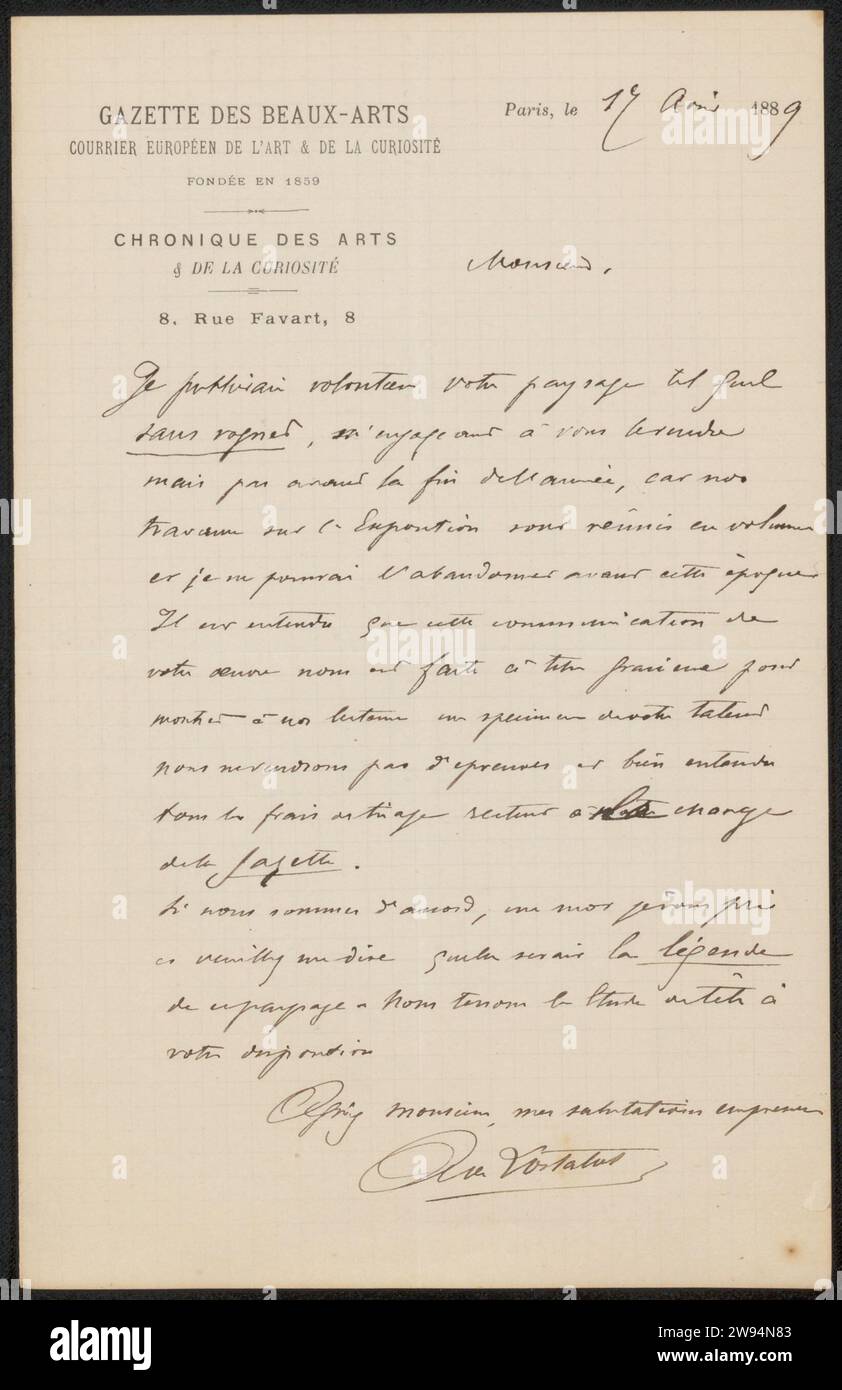 GAZETTE DES BEAUX-ARTS
COURRIER EUROPÉEN DE L'ART & DE LA CURIOSITÉ
FONDÉE EN 1859
CHRONIQUE DES ARTS
& DE LA CURIOSITÉ
8, Rue Favart, 8
Paris, le 17 1889
Monsieur,
Je publierai volontiers votre paysage tel quel
sans rogner, m'engageant à vous le rendre
mais pas avant la fin de l'année, car nos
travaux sur l'Exposition sont réunis en volume
et je ne pourrai l'abandonner avant cette époque
Il est entendu que cette communication de
votre œuvre nous est faite à titre gracieux pour
montrer à nos lecteurs un specimen de votre talent
nous ne vendrons pas d'épreuves et bien entendu
tous les frais de tirage restent à charge
de la Gazette.
Si nous sommes d'accord, un mot je vous prie
et veuillez me dire quelle serait la légende
de ce paysage. Nous tenons l'Etude de tête à
votre disposition
Agréez monsieur, mes salutations empressées
de Lostalot
alamy
Image ID: 2W94N83
www.alamy.com